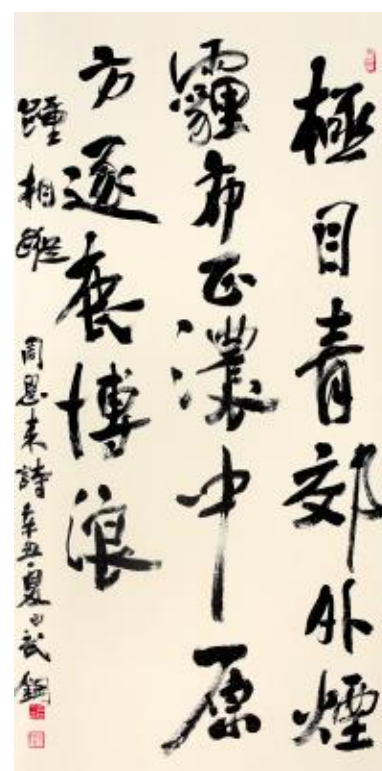 極目青郊外煙
霾布正濃中原
方逐鹿博浪
踵相蹤
周恩来詩辛丑夏日武鋼